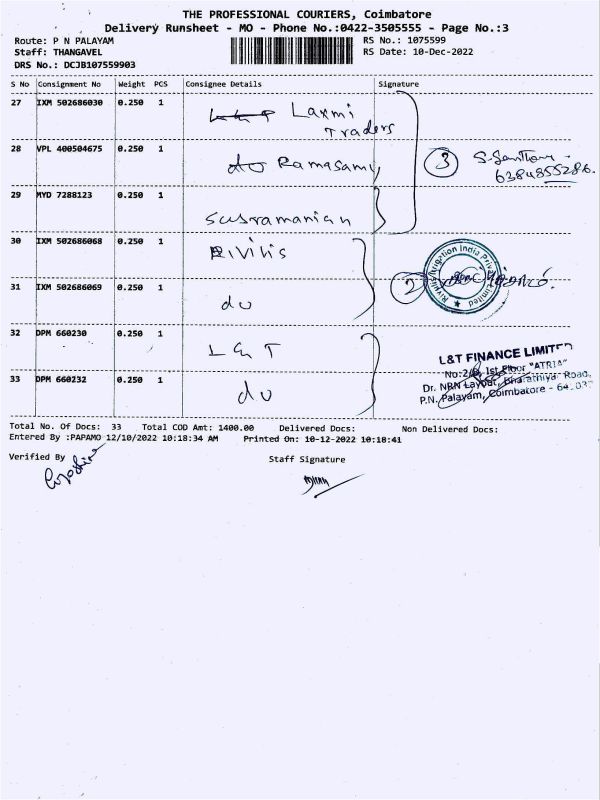 THE PROFESSIONAL COURIERS, Coimbatore
Delivery Runsheet - MO - Phone No.:0422-3505555 - Page No.:3
Route: P N PALAYAM RS No.: 1075599
Staff: THANGAVEL RS Date: 10-Dec-2022
DRS No.: DCJB107559903
S No Consignment No Weight PCS Consignee Details Signature
27 IXM 502686030 0.250 1 Laxmi
Traders
28 VPL 400504675 0.250 1 do Ramasamy
3 6384855286.
29 MYD 7288123 0.250 1
Susramanian
30 IXM 502686068 0.250 1 Rivilis
Rivulis Irrigation India Private Limited
31 IXM 502686069 0.250 1 do 2
32 DPM 660230 0.250 1 L & T
L&T FINANCE LIMITED
33 DPM 660232 0.250 1 do
No:2/ 1st Floor "ATRIA"
Dr. NRN Layout, Bharathiyar Road,
P.N. Palayam, Coimbatore - 641 037
Total No. Of Docs: 33 Total COD Amt: 1400.00 Delivered Docs: Non Delivered Docs:
Entered By :PAPAMO 12/10/2022 10:18:34 AM Printed On: 10-12-2022 10:18:41
Verified By Staff Signature